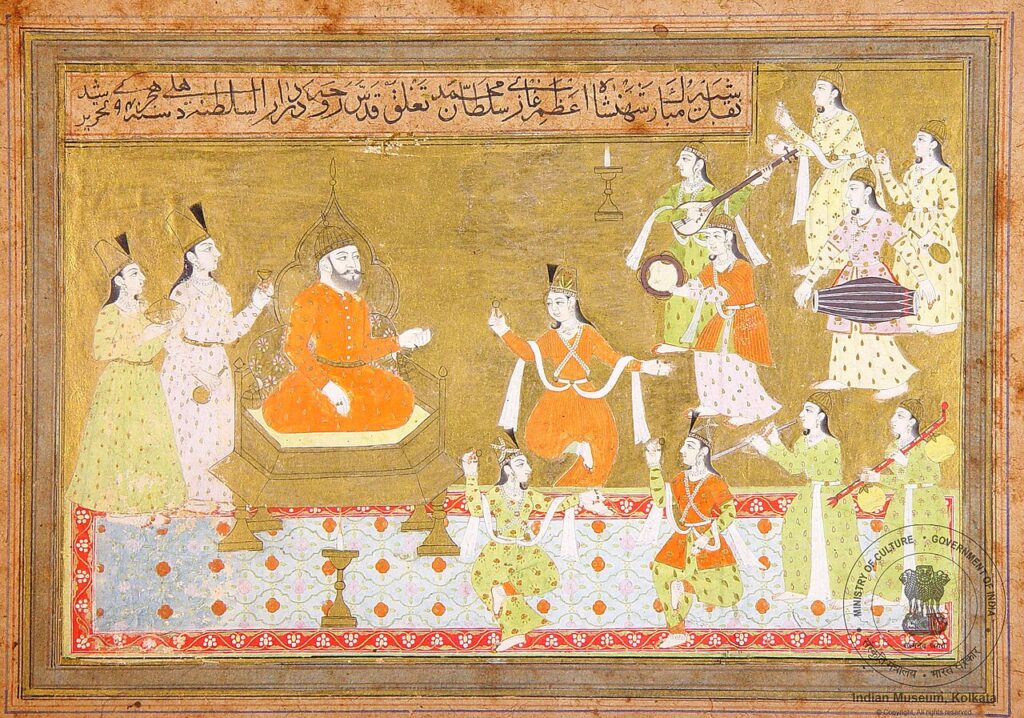 شبیه مبارک شهنشاه اعظم غازی سلطان محمد تغلق قدس روحه در دار السلطنة سنه تحریر شد
MINISTRY OF CULTURE • GOVERNMENT OF INDIA
संस्कृति मंत्रालय • भारत सरकार
Indian Museum, Kolkata
© Copyright, All rights reserved.